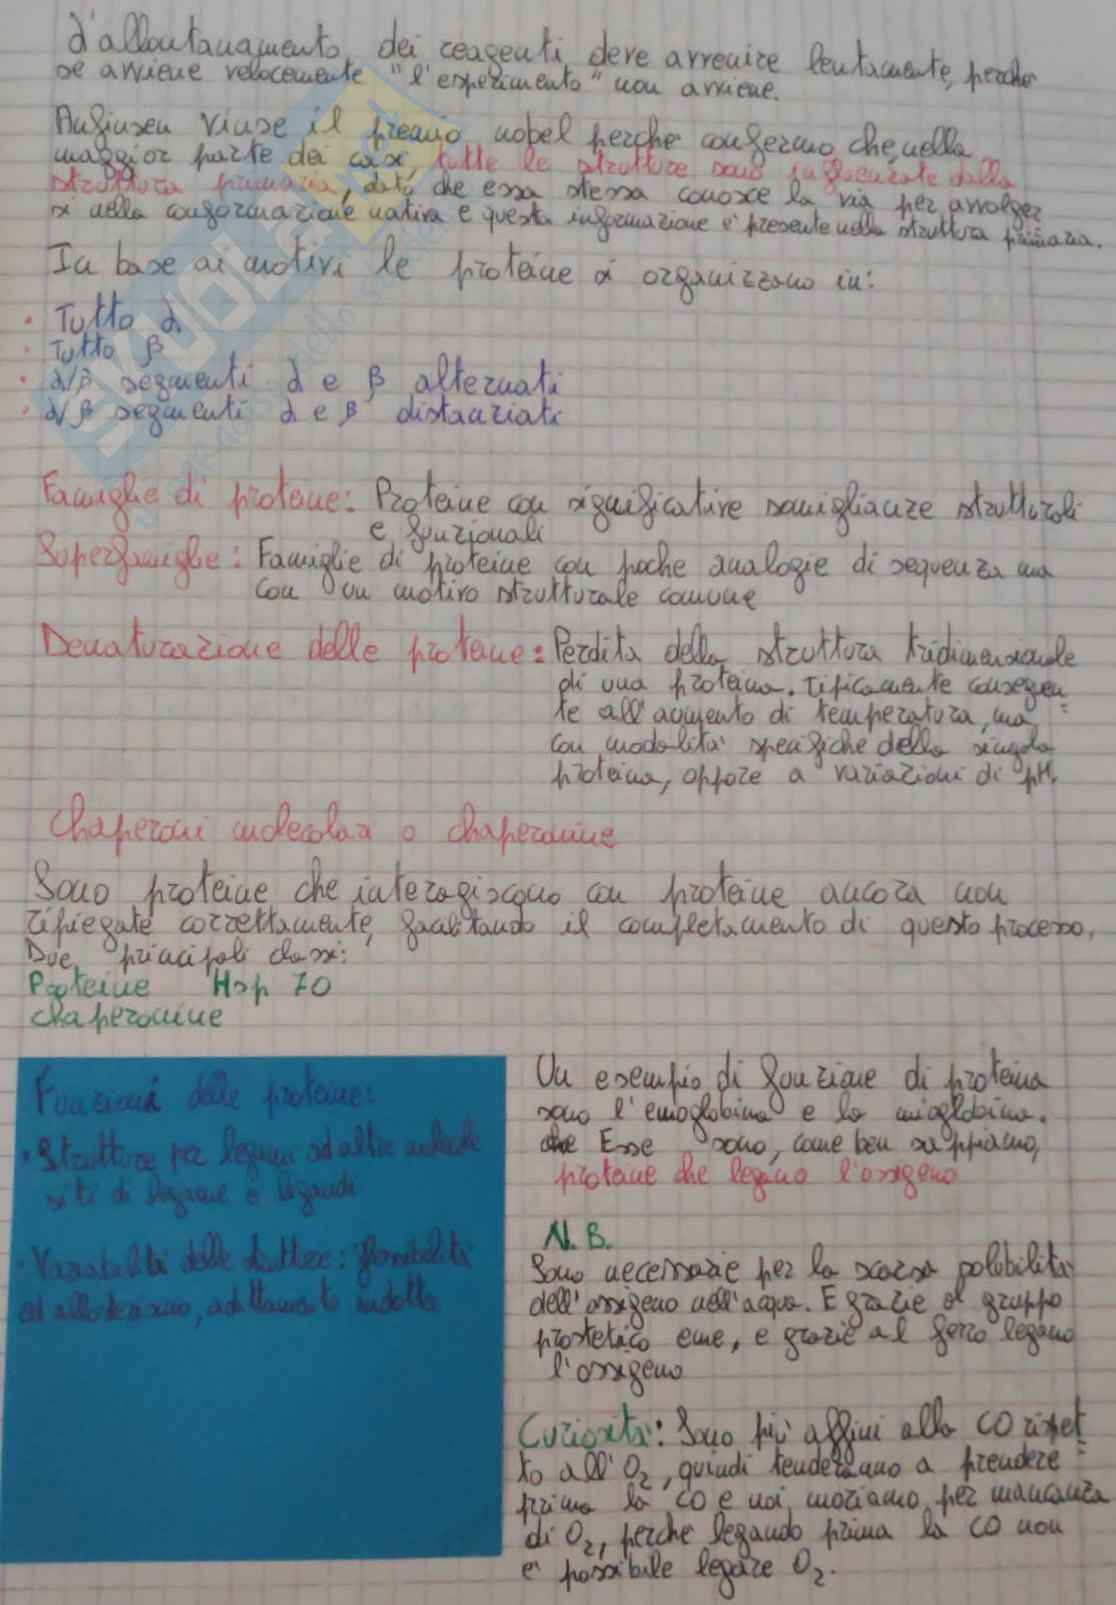 d'allontanamento dei reagenti deve avvenire lentamente, perche
se avviene velocemente "l'esperimento" non avviene.
Anfinsen vinse il premio nobel perche confermo che, nella
maggior parte dei casi, tutte le strutture sono influenzate dalla
struttura primaria, dato che essa stessa conosce la via per avvolger
si nella conformazione nativa e questa informazione e' presente nella struttura primaria.
In base ai motivi le proteine si organizzano in:
• Tutto α
• Tutto β
• α/β segmenti α e β alternati
• α/β segmenti α e β distanziati
Famiglie di proteine: Proteine con significative somiglianze strutturali
e funzionali
Superfamiglie: Famiglie di proteine con poche analogie di sequenza ma
con un motivo strutturale comune
Denaturazione delle proteine: Perdita della struttura tridimensionale
di una proteina. Tipicamente conseguen=
te all'aumento di temperatura, ma
con modalita' specifiche della singola
proteina, oppure a variazioni di pH.
Chaperoni molecolari o chaperonine
Sono proteine che interagiscono con proteine ancora non
ripiegate correttamente, facilitando il completamento di questo processo.
Due principali classi:
Proteine Hsp 70
chaperonine
Funzioni delle proteine:
• Strutture per legami ad altre molecole
siti di legame e ligandi
• Variabilità delle strutture: flessibilità
ed allosterismo, adattamento indotto
Un esempio di funzione di proteina
sono l'emoglobina e la mioglobina.
Esse sono, come ben sappiamo,
proteine che legano l'ossigeno
N.B.
Sono necessarie per la scarsa solubilità
dell'ossigeno nell'acqua. E grazie al gruppo
prostetico eme, e grazie al ferro legano
l'ossigeno
Curiosità: Sono più affini alla CO rispet=
to all'O2, quindi tenderanno a prendere
prima la CO e noi moriamo per mancanza
di O2, perche legando prima la CO non
e' possibile legare O2.